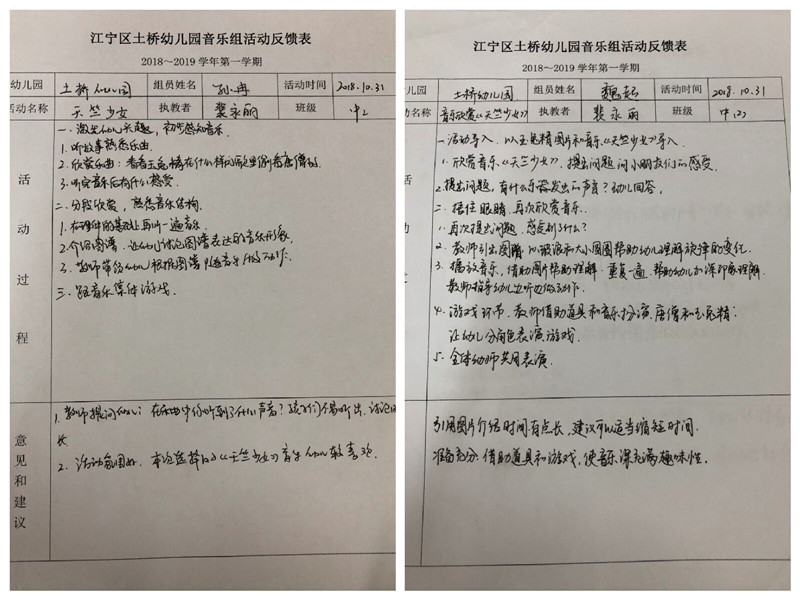 江宁区土桥幼儿园音乐组活动反馈表
2018~2019学年第一学期
幼儿园 土桥幼儿园 组员姓名 孙冉 活动时间 2018.10.31
活动名称 天竺少女 执教者 裴永丽 班级 中2
活动过程
一、激发幼儿兴趣,初步感知音乐.
1. 听故事熟悉乐曲.
2. 欣赏乐曲:看看玉兔精在什么样的
3. 听完音乐后有什么感受.
二、分段欣赏,熟悉音乐结构.
1. 在理解的基础上再听一遍音乐.
2. 介绍图谱,让幼儿 图谱表达的音乐形象.
3. 教师带领幼儿根据图谱 音乐 动作.
三、跟音乐集体游戏.
意见和建议
1. 教师提问幼儿:在乐曲中你听到了什么声音?孩子们不易听出,讨论
长
2. 活动氛围好,本次选择的《天竺少女》音乐幼儿较喜欢.
江宁区土桥幼儿园音乐组活动反馈表
2018~2019学年第一学期
儿园 土桥幼儿园 组员姓名 魏 活动时间 2018.10.31
动名称 音乐欣赏《天竺少女》 执教者 裴永丽 班级 中(2)
活动过程
一、活动导入,以玉兔精图片和音乐《天竺少女》导入.
1. 欣赏音乐《天竺少女》,提出问题问小朋友们的感受.
2. 提出问题,有什么乐器发出的声音?幼儿回答.
二、捂住眼睛,再次欣赏音乐.
1. 再次提出问题,感受到了什么?
2. 教师引出图谱,以波浪和大小圆圈帮助幼儿理解旋律的变化.
3. 播放音乐,借助图片帮助理解,重复一遍,帮助幼儿加深印象理解.
教师指导幼儿边听边做动作.
4. 游戏环节,教师借助道具和音乐扮演唐僧和玉兔精;
让幼儿分角色表演游戏.
5. 全体幼师共同表演.
意见和建议
引用图片介绍时间有点长,建议可以适当缩短时间.
准备充分,借助道具和游戏,使音乐课充满趣味性.